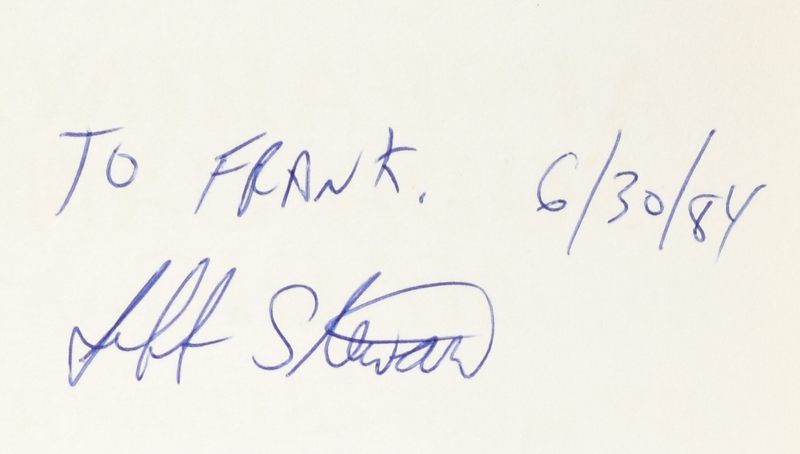 TO FRANK. 6/30/84
Jeff Stewart